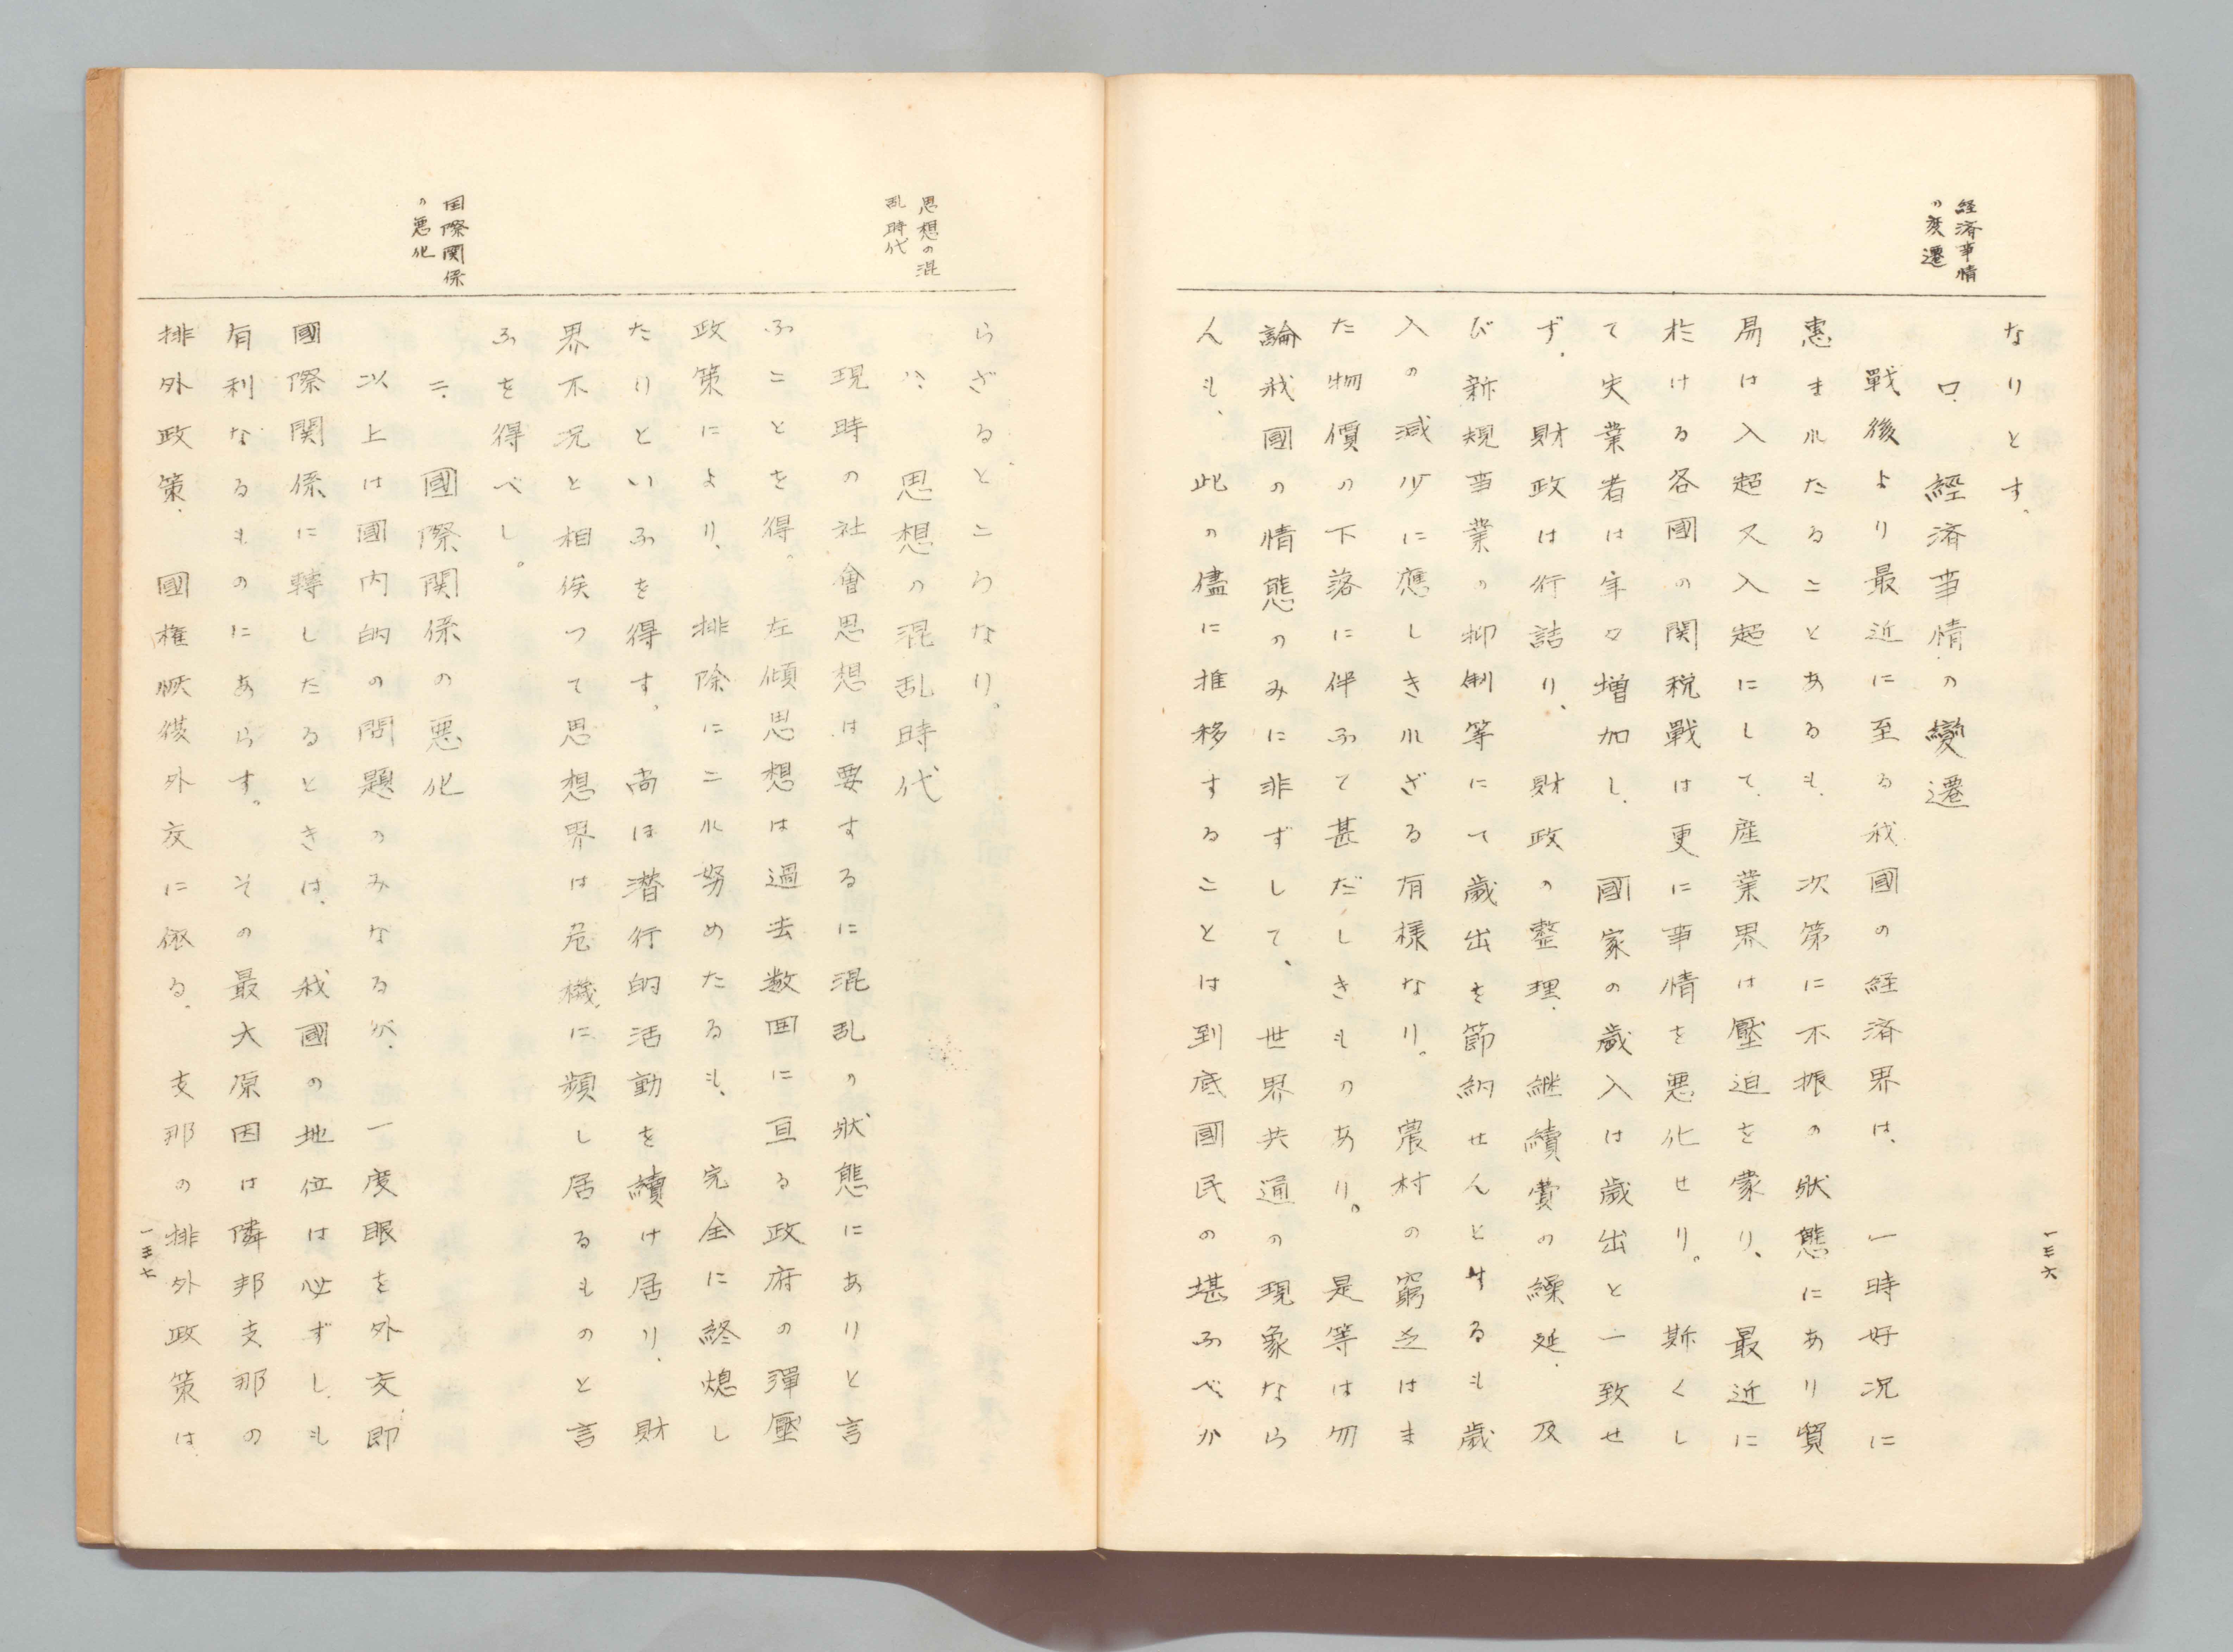 経済事情
の変遷
なりとす、
ロ、經済事情の變遷
戰後より最近に至る我國の経済界は、一時好況に
惠まれたることあるも、次第に不振の狀態にあり貿
易は入超又入超にして、産業界は壓迫を蒙り、最近に
於ける各國の関税戰は更に事情を悪化せり。斯くし
て失業者は年々増加し、國家の歳入は歳出と一致せ
ず、財政は行詰り、財政の整理、継續費の繰延、及
び新規事業の抑制等にて歳出を節納せんとするも歳
入の減少に應しきれざる有様なり。農村の窮乏はま
た物價の下落に伴ふて甚だしきものあり。是等は勿
論我國の情態のみに非ずして、世界共通の現象なら
んも、此の儘に推移することは到底國民の堪ふべか
一三六
思想の混
乱時代
国際関係
の悪化
らざるところなり。
ハ、思想の混乱時代
現時の社會思想は要するに混乱の狀態にありと言
ふことを得。左傾思想は過去数回に亘る政府の彈壓
政策により、排除にこれ努めたるも、完全に終熄し
たりといふを得す。尚ほ潜行的活動を續け居り、財
界不況と相俟つて思想界は危機に頻し居るものと言
ふを得べし。
ニ、國際関係の悪化
以上は國内的の問題のみなるが、一度眼を外交、即
國際関係に轉したるときは、我國の地位は必ずしも
有利なるものにあらす。その最大原因は隣邦支那の
排外政策、國権恢復外交に依る、支那の排外政策は、
一三七